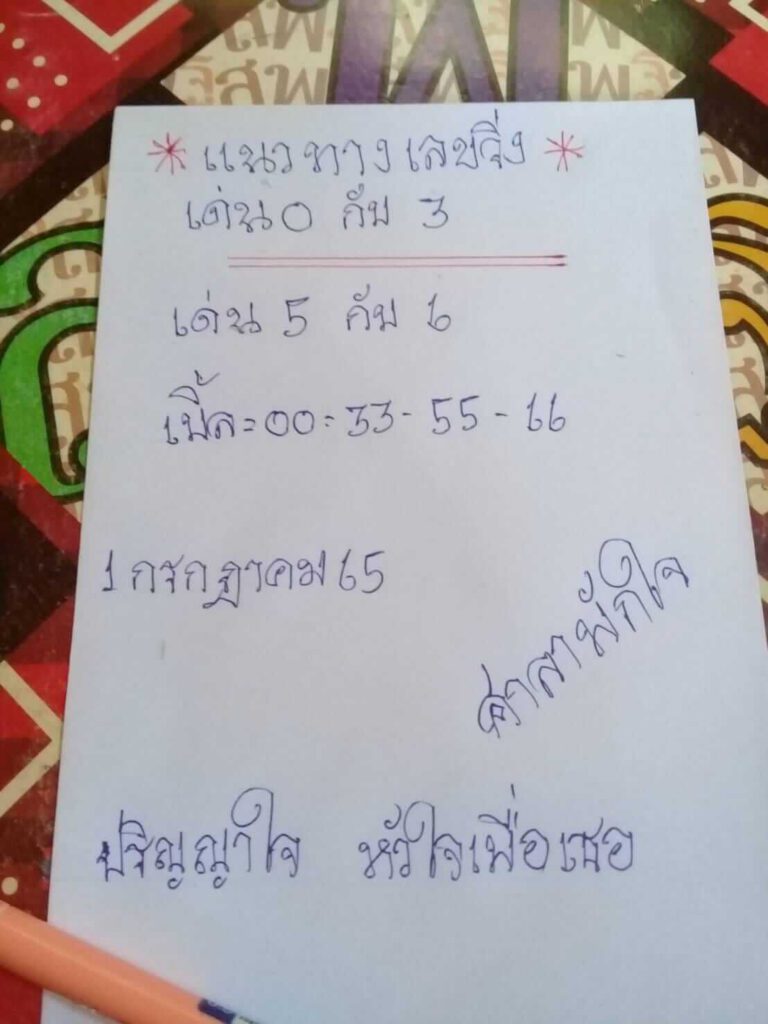 * แนวทางเลขวิ่ง *
เด่น 0 กับ 3
เด่น 5 กับ 6
เบิ้ล = 00 = 33 - 55 - 66
1 กรกฎาคม 65
ศาลาพักใจ
ปริญญาใจ หัวใจเพื่อเธอ